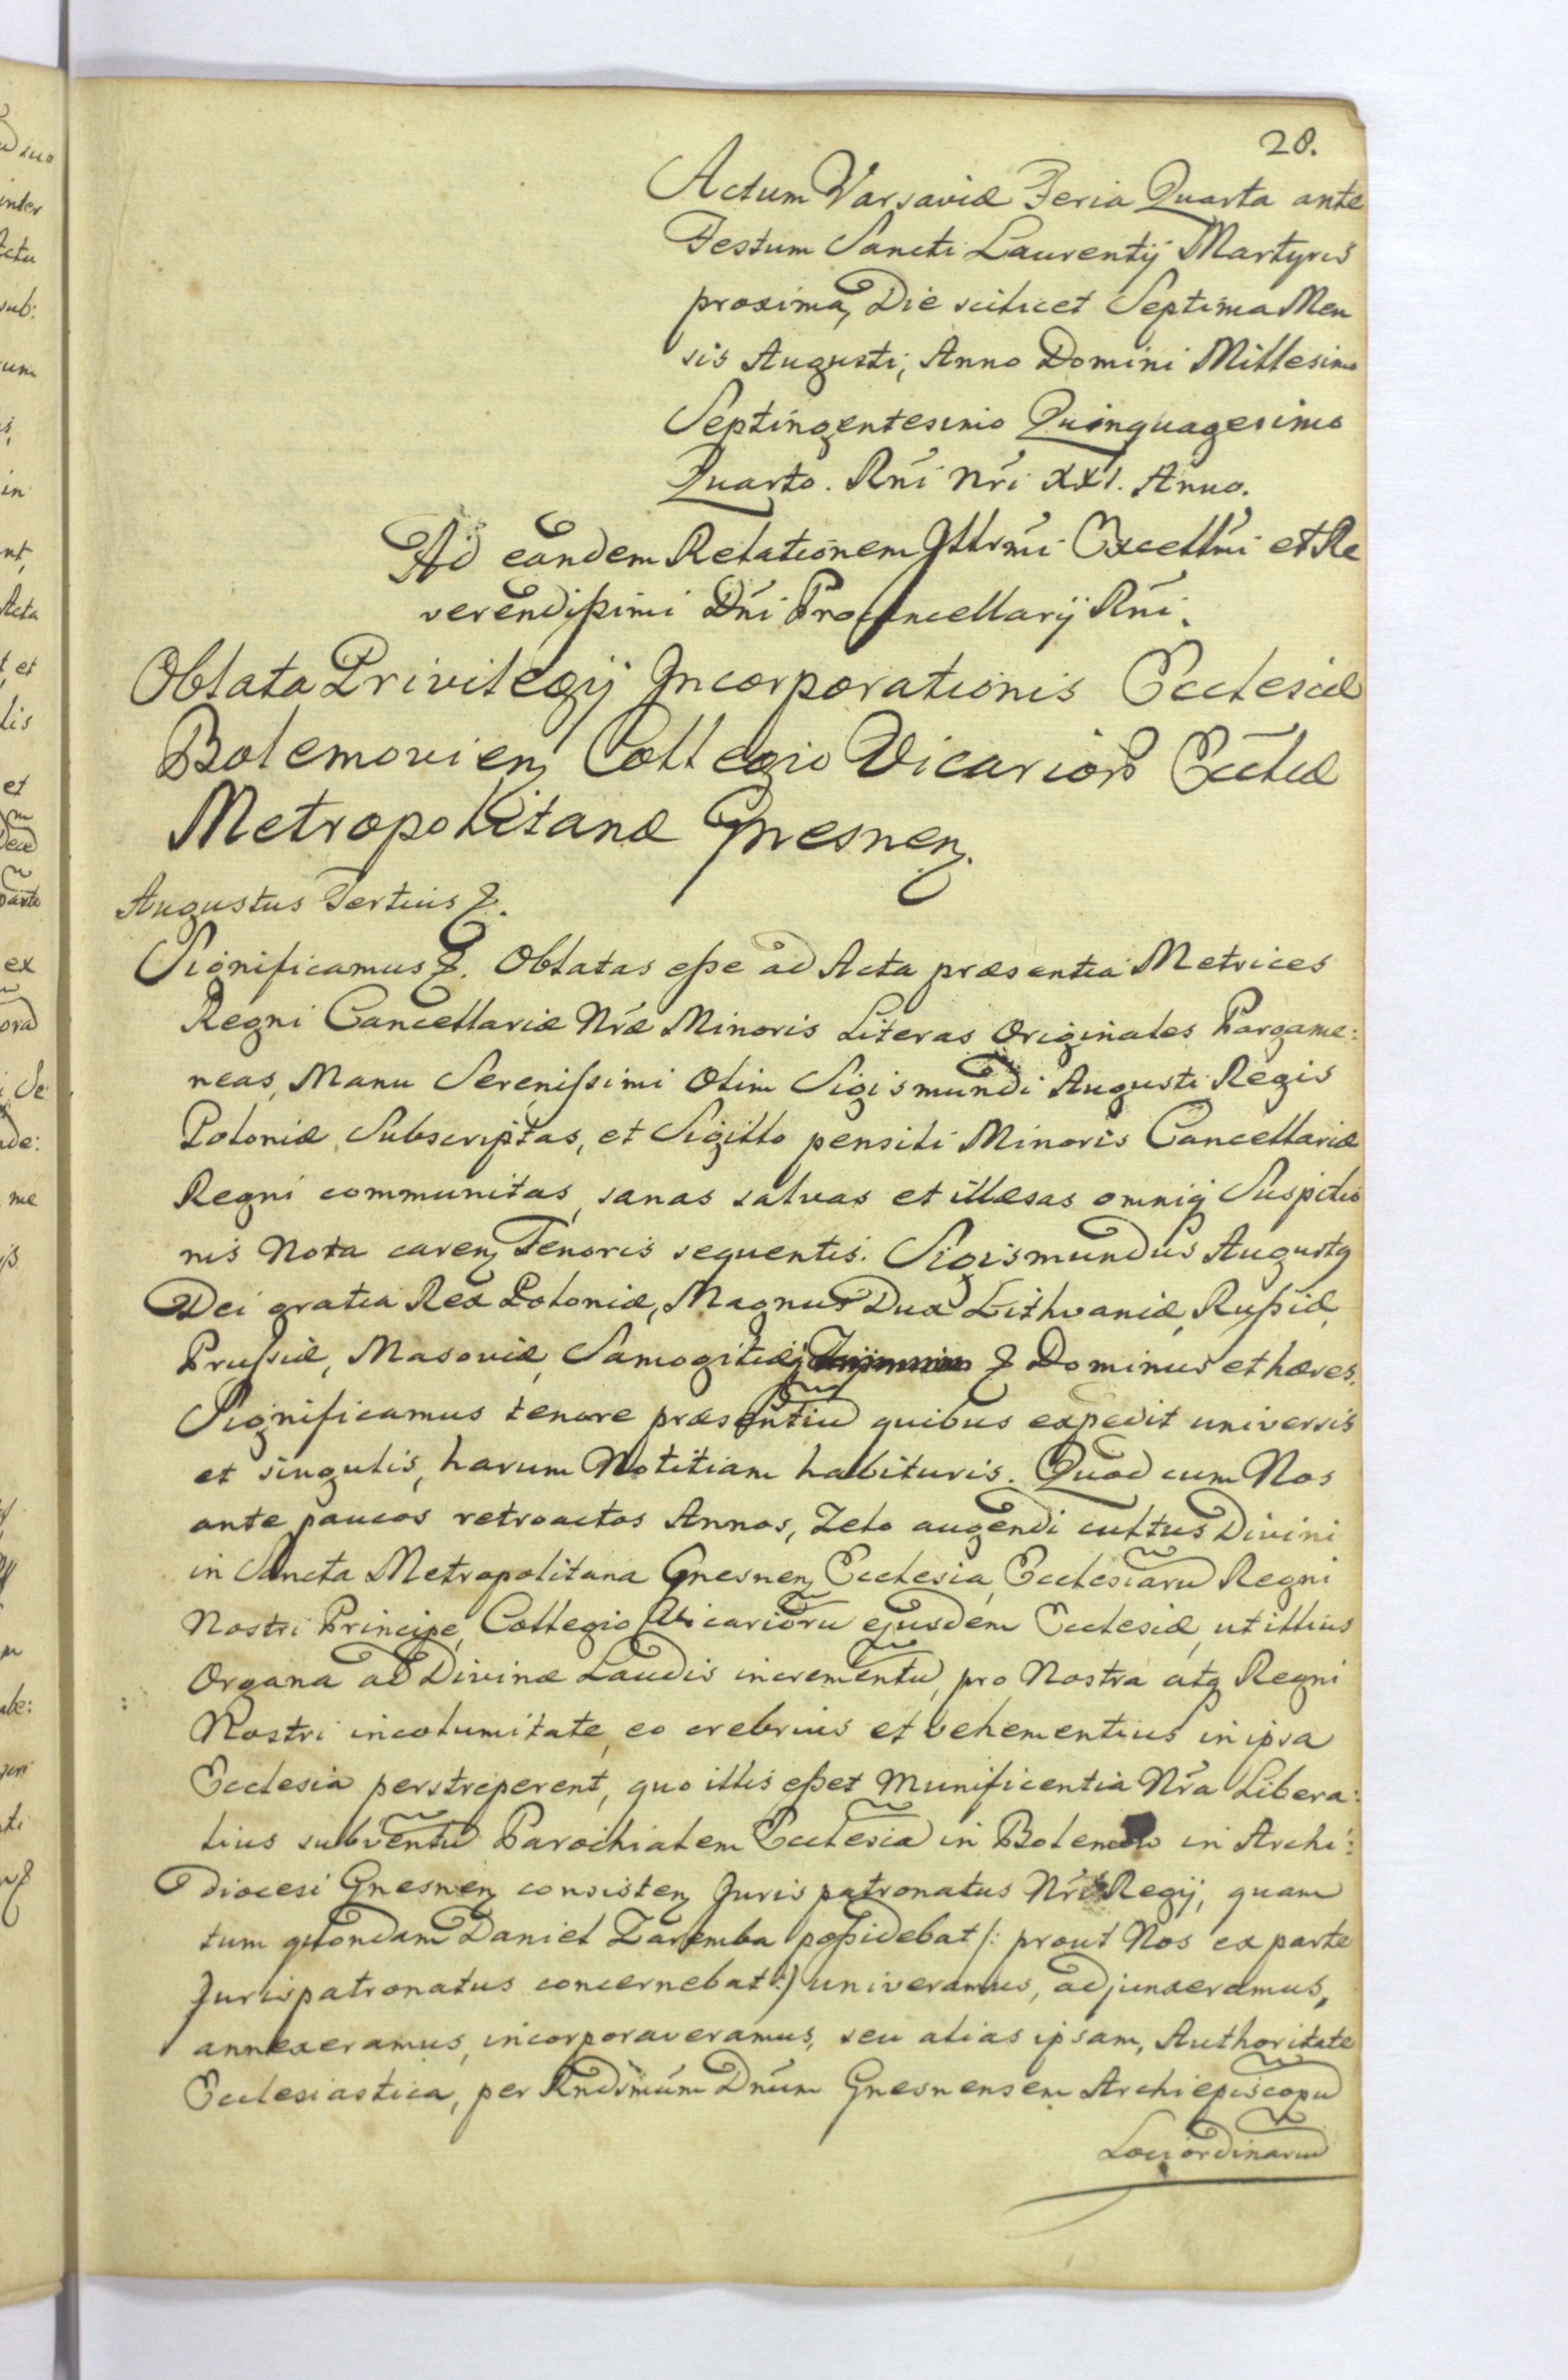 28.
Actum Varsaviæ Feria Quarta ante
Festum Sancti Laurentij Martyris
proxima, Die scilicet Septima Men
sis Augusti, Anno Domini Millesimo
Septingentesimo Quinquagesimo
Quarto. Rńi Nŕi XXI. Anno.
Ad eandem Relationem Illrḿi Excellḿi et Re
verendißimi Dńi Procancellarij Rńi.
Oblata Privilegij Incorporationis Ecclesiæ
Bolemovień Collegio Vicarior Eccłæ
Metropolitanæ Gnesneń.
Augustus Tertius &.
Significamus &. Oblatas eße ad Acta præsentia Metrices
Regni Cancellariæ Nŕæ Minoris Literas Originales Pargame:
neas, Manu Serenißimi Olim Sigismundi Augusti Regis
Poloniæ Subscriptas, et Sigillo pensili Minoris Cancellariæ
Regni communitas, sanas salvas et illæsas omniq Suspitio
nis Nota careń Tenoris sequentis. Sigismundus Augustq
Dei gratia Rex Poloniæ, Magnus Dux Lithvaniæ, Rußiæ,
Prußiæ, Masoviæ, Samogitiæq & Dominus et hæres.
Significamus tenore præsentiu quibus expedit universis
et singulis, harum Notitiam habituris. Quod cum Nos
ante paucos retroactos Annos, Zelo augendi cultus Divini
in Sancta Metropolitana Gnesneń Ecclesia, Ecclesiaru Regni
Nostri Principe, Collegio Vicarioru ejusdem Ecclesiæ, ut illius
Organa ad Divinæ Laudis incrementu, pro Nostra atq Regni
Nostri incolumitate, eo crebrius et vehementius in ipsa
Ecclesia perstreperent, quo illis eßet Munificentia Nŕa Libera:
lius subventu Parochialem Ecclesia in in Archi:
diocesi Gnesneń consisteń Juris patronatus Regij, quam
tum quondam Daniel Zaremba poßidebat /: prout Nos ex parte
Jurispatronatus concernebat :/ univeramus, adjunxeramus,
annexeramus, incorporaveramus, seu alias ipsam, Authoritate
Ecclesiastica, per Rndiḿum Dńum Gnesnensem Archiepiscopu
Loci ordinariu